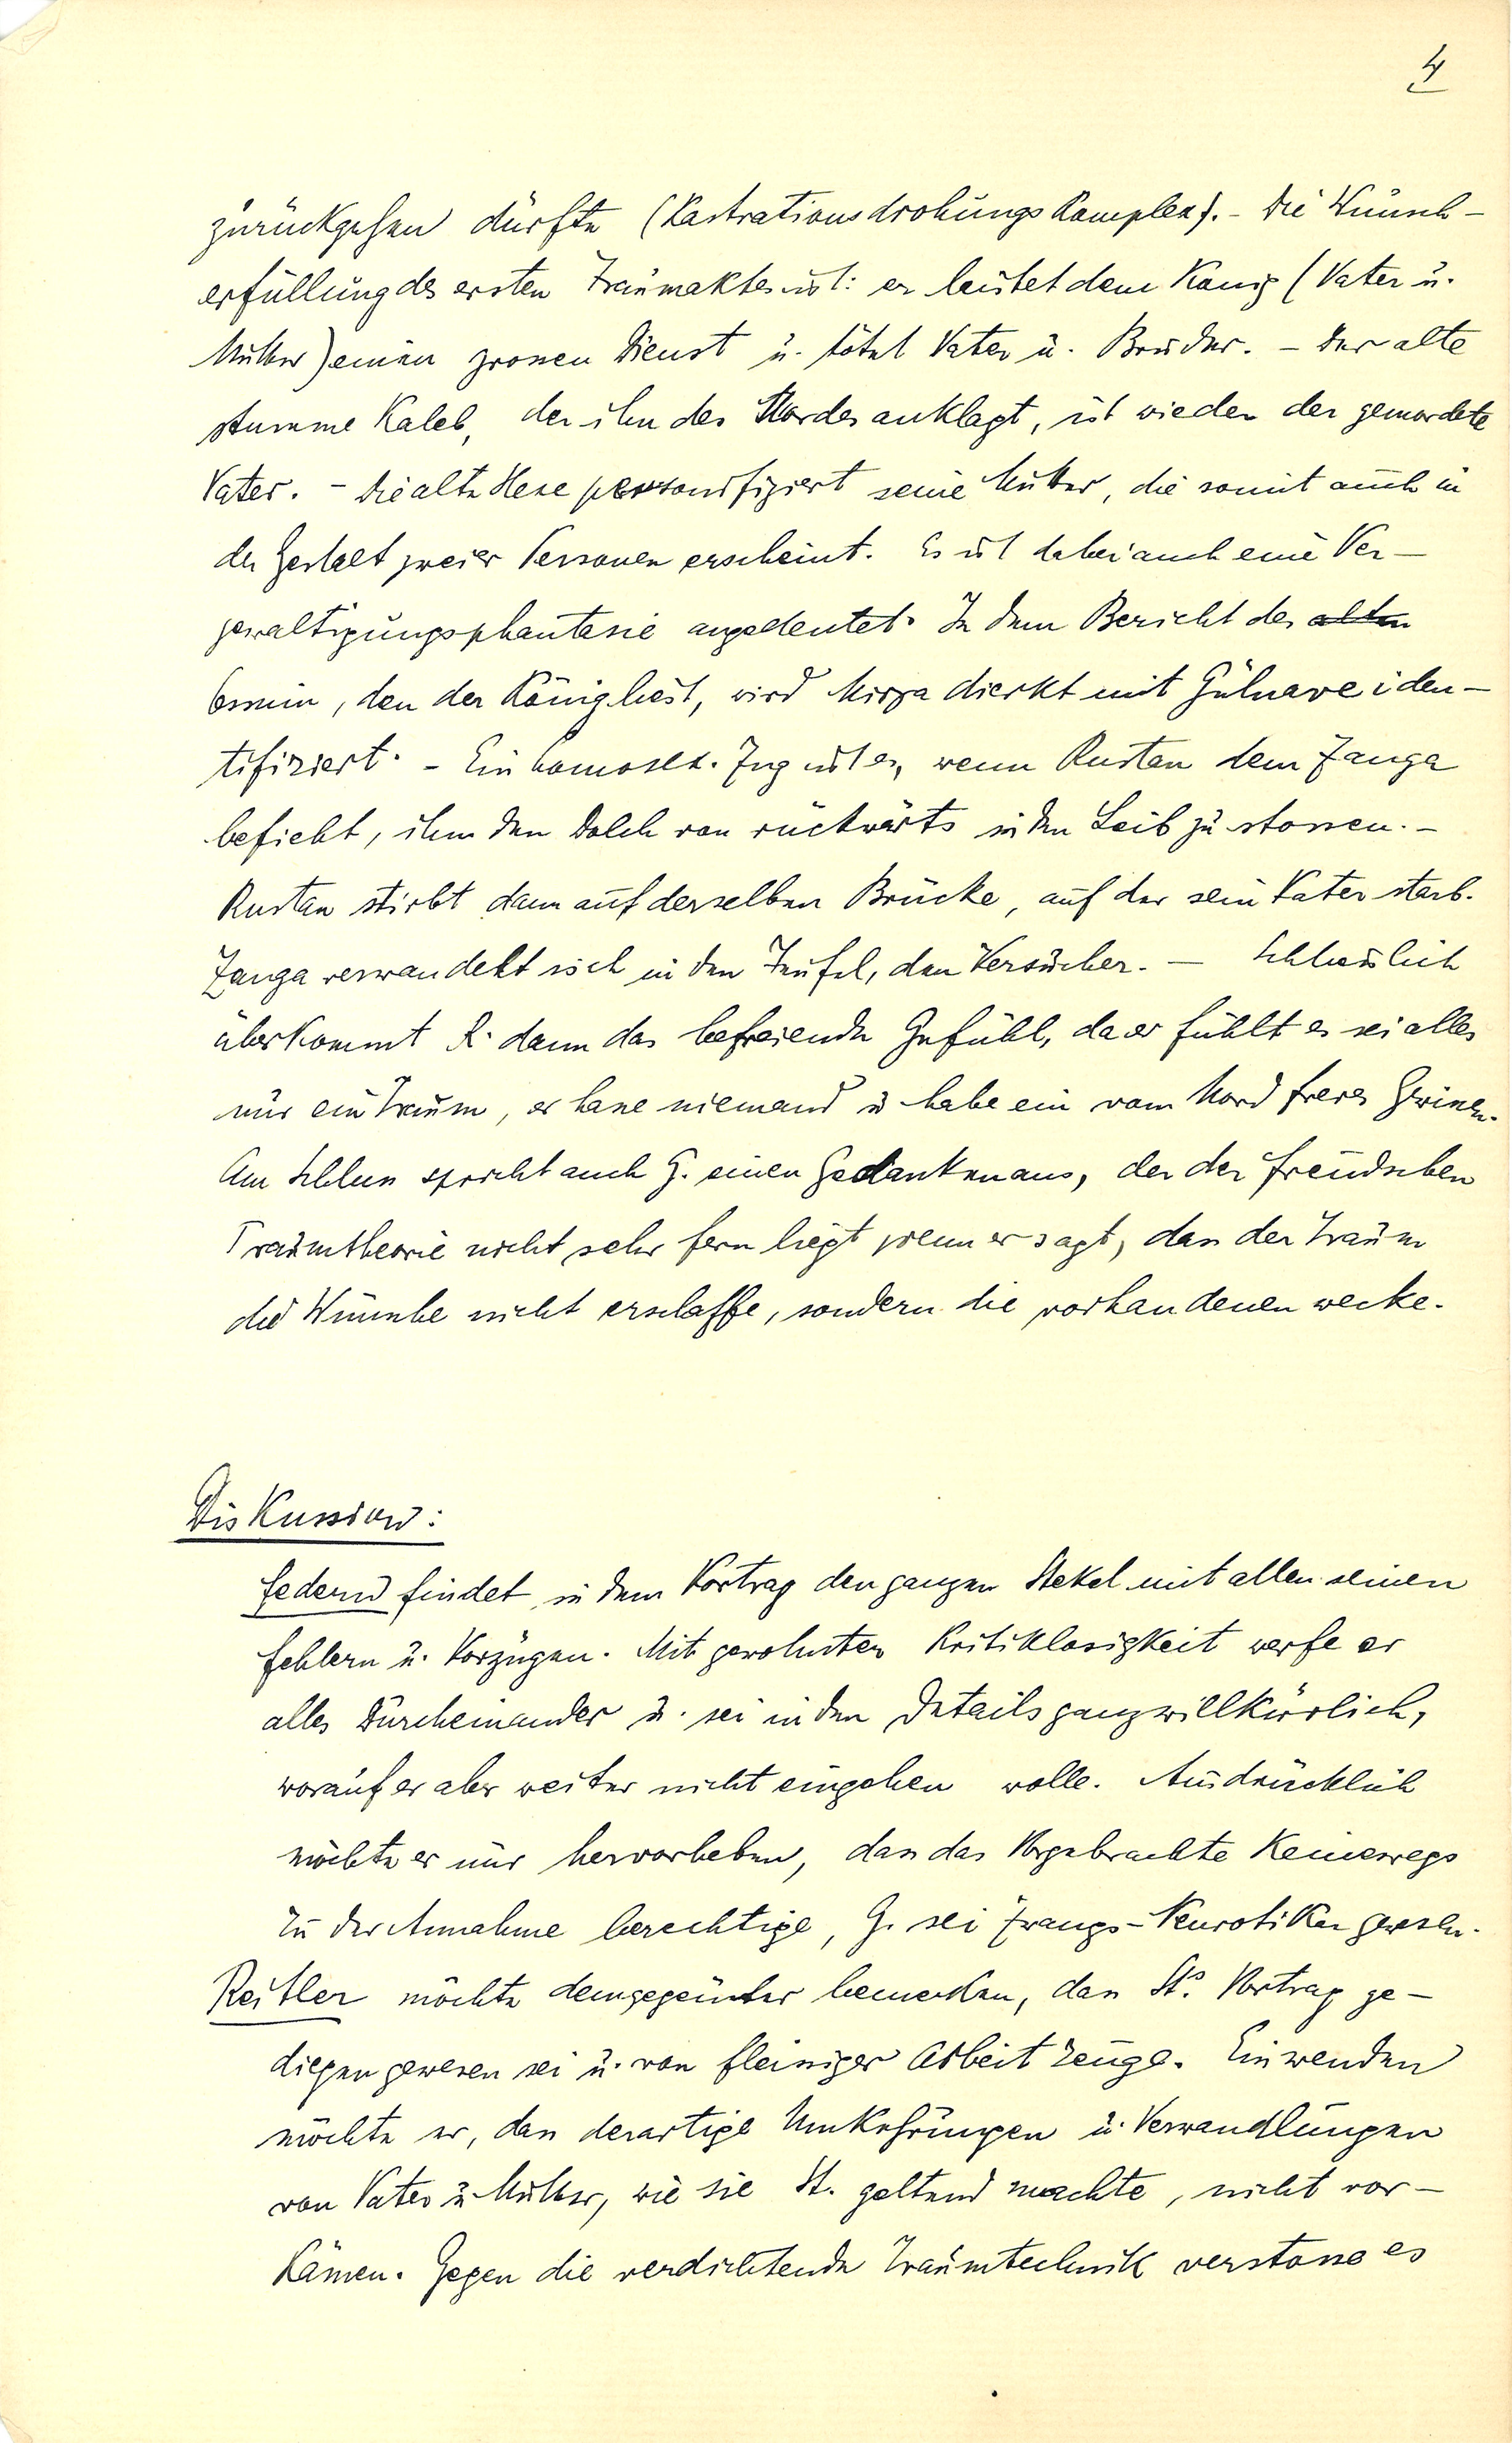 4
zurückgehen dürfte (Kastrationsdrohungskomplex). – Die Wunsch-
erfüllung des ersten Traumaktes ist: er leistet dem König (Vater u.
Mutter) einen grossen Dienst u. tötet Vater u. Bruder. – Der alte
stumme Kaleb, der ihn des Mordes anklagt, ist wieder der gemordete
Vater. – Die alte Hexe personifiziert seine Mutter, die somit auch in
der Gestalt zweier Personen erscheint. Es ist dabei auch eine Ver-
gewaltigungsphantasie angedeutet. In dem Bericht des alten
Osmin, den der König liest, wird Mirza dierkt mit Gülnare iden-
tifiziert. – Ein homosex. Zug ist es, wenn Rustan dem Zanga
befiehlt, ihm den Dolch von rückwärts in den Leib zu stossen. –
Rustan stirbt dann auf derselben Brücke, auf der sein Vater starb.
Zanga verwandelt sich in den Teufel, den Versucher. – Schliesslich
überkommt R. dann das befreiende Gefühl, da er fühlt es sei alles
nur ein Traum, er hasse niemand u habe ein vom Mord freies Gewissen.
Am Schluss spricht auch G. einen Gedanken aus, der der Freudschen
Traumtheorie nicht sehr fern liegt wenn er sagt, dass der Traum
die Wünsche nicht erschaffe, sondern die vorhandenen wecke.
Diskussion:
Federn findet in dem Vortrag den ganzen Stekel mit allen seinen
Fehlern u. Vorzügen. Mit gewohnter Kritiklosigkeit werfe er
alles durcheinander u. sei in den Details ganz willkürlich,
worauf er aber weiter nicht eingehen wolle. Ausdrücklich
möchte er nur hervorheben, dass das Vorgebrachte keineswegs
zu der Annahme berechtige, G. sei Zwangs-Neurotiker gewesen.
Reitler möchte demgegenüber bemerken, dass St's Vortrag ge-
diegen gewesen sei u. von fleissiger Arbeit zeuge. Einwenden
möchte er, dass derartige Umkehrungen u. Verwandlungen
von Vater u Mutter, wie sie St. geltend machte, nicht vor-
kämen. Gegen die verdichtende Traumtechnik verstosse es